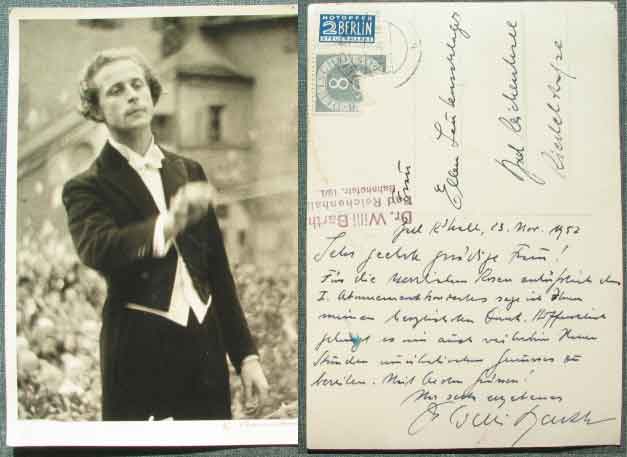 NOTOPFER
2 BERLIN
STEUERMARKE
8
Frau
Ellen
Bad Reichenhall
Dr. Willi Barth
Bad Reichenhall
Bahnhofstr. 19/I.
13. Nov. 1952
Sehr geehrte gnädige Frau!
Für die herrlichen Rosen anläßlich des
I. Abonnementkonzertes sage ich Ihnen
meinen herzlichsten Dank. Hoffentlich
gelingt es mir auch weiterhin Ihnen
Stunden musikalischen Genusses zu
bereiten. Mit besten Grüssen!
Ihr sehr ergebener
Dr. Willi Barth